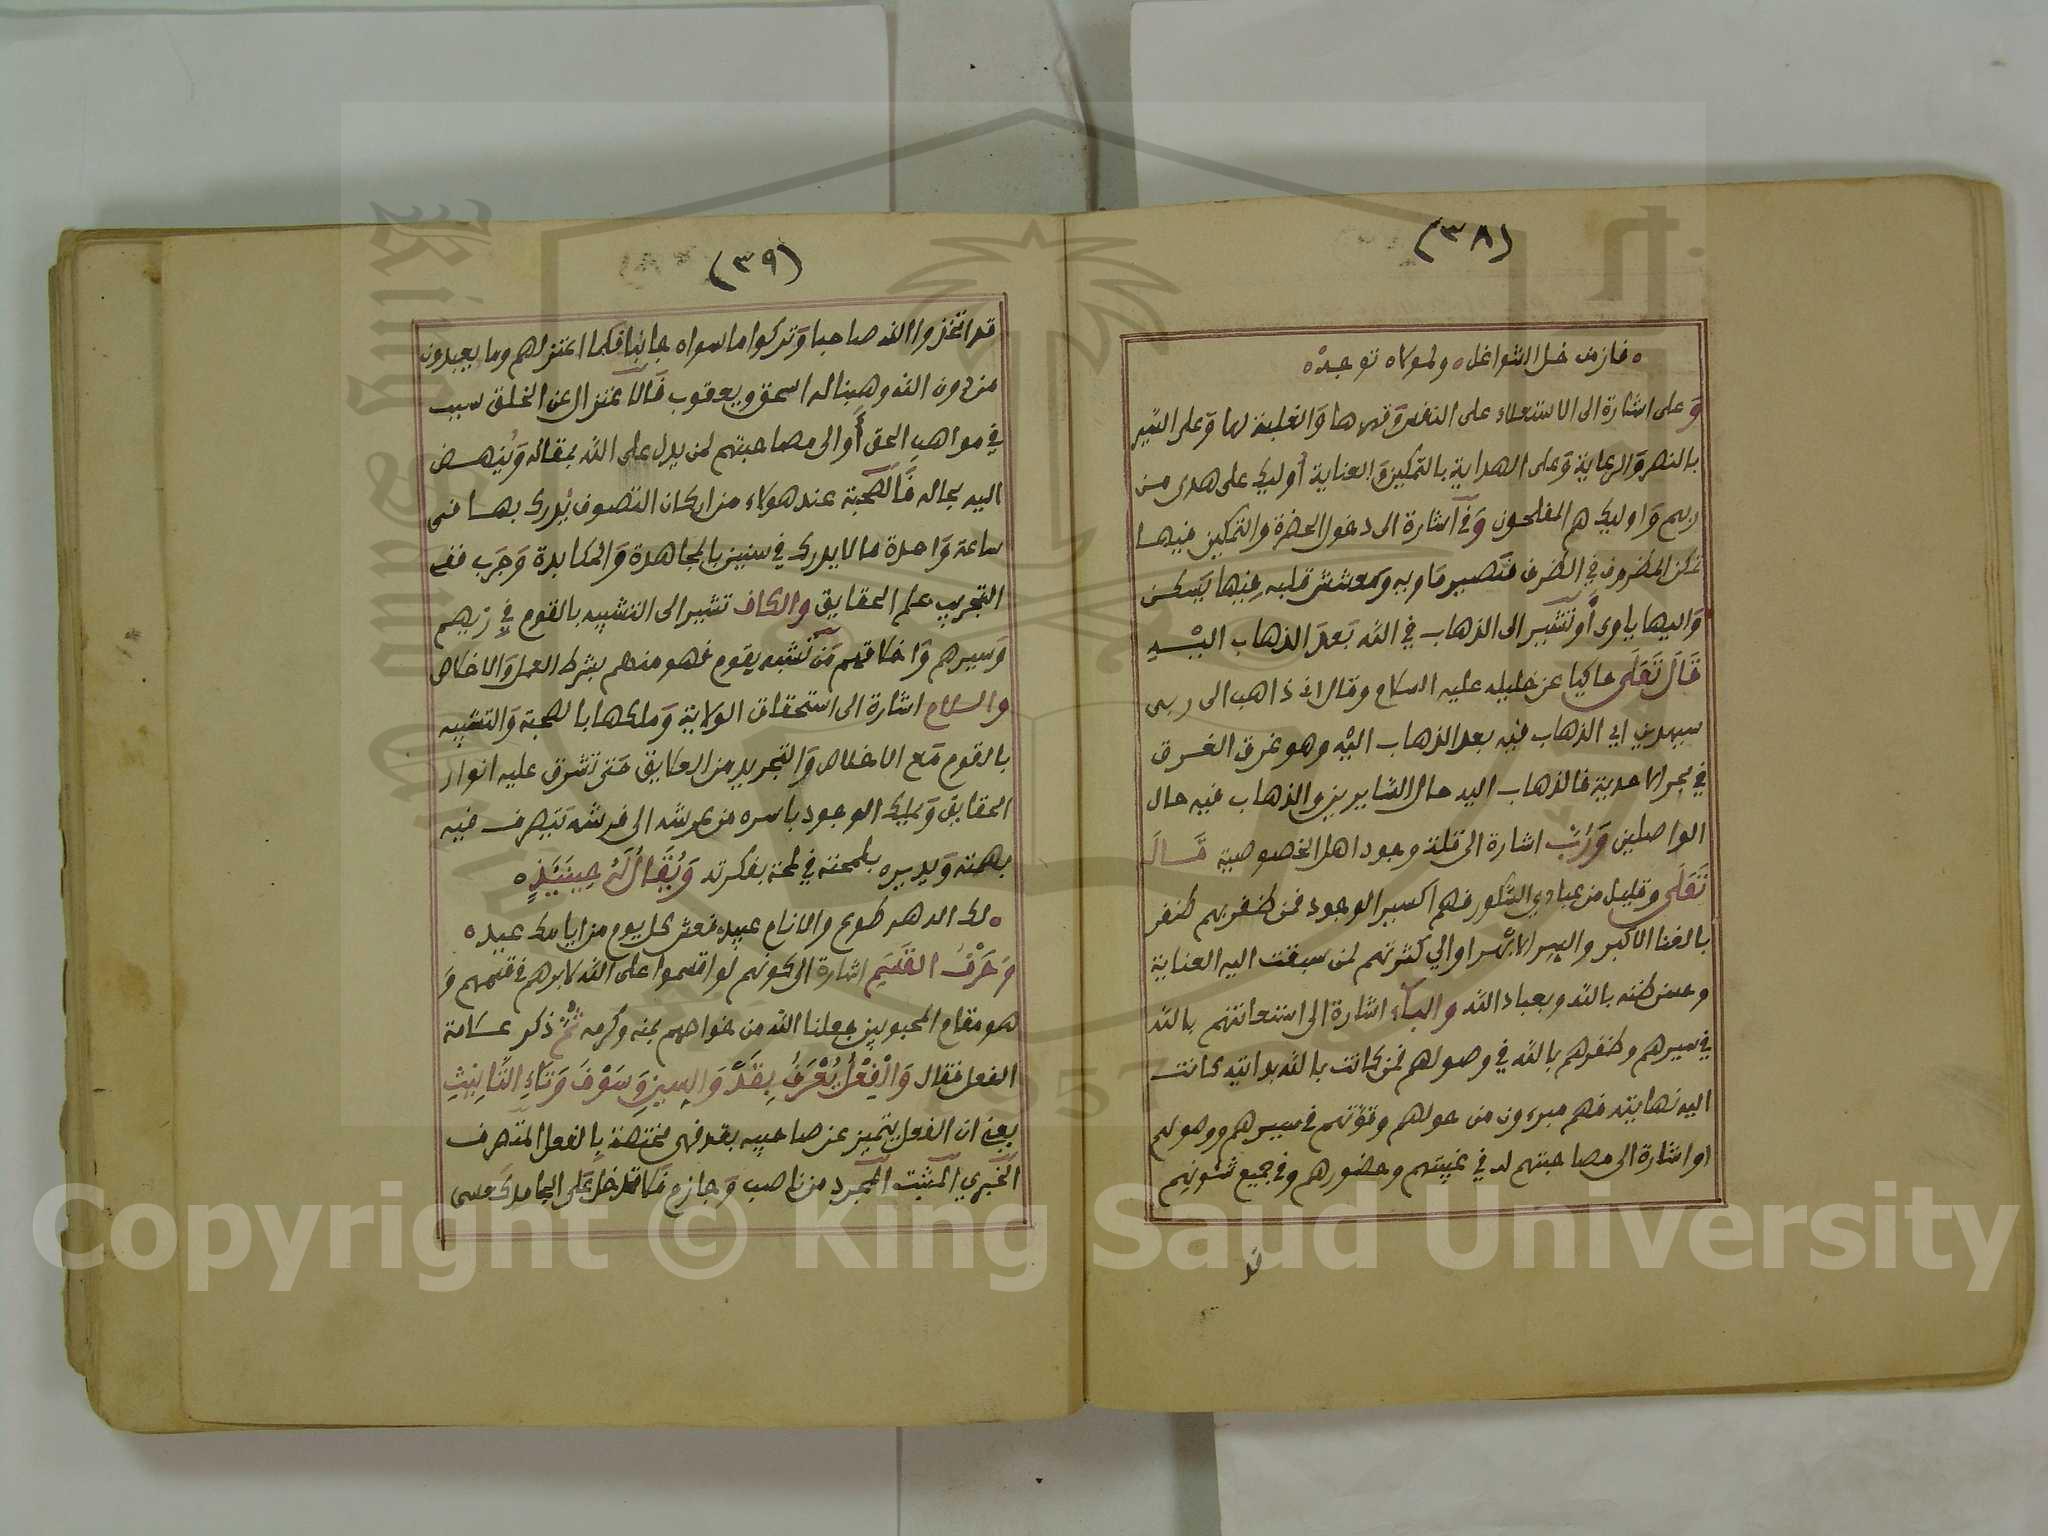 (٣٨)
ه فازمن خل الشواغل ه ولمولاه توجده
وَعلى اشارة الى الاستعلاء على النفس وَقهرها وَالغلبة لها وَعلى السَّير
بالنهر وَالرعاية وَعلى الهداية بالتمكين وَالعناية أوليك على هدى من
ربهم وَاوليك هم المفلحون وَفي اشارة الى دخول الحضرة والتمكين فيها
تمكن المظروف في الظرف فتصير مَاويه ومعشش قلبه فيها يسكن
وَاليها ياوى أو تشير الى الذهاب في الله بَعدَ الذهاب اليْه
قَالَ تَعَلَى حاكيا عن خليله عليه السلام وقال انى ذاهب الى ربى
سيهدين اي الذهاب فيْه بعد الذهاب اليْه وهو غرق الغرق
في بحر الاحدية فالذهاب اليه حال السَّايرين والذهاب فيه حال
الواصلين وَرُبَّ اشارة الى قلة وجود اهل الخصوصية قَالَ
تَعَلَى وقليل من عبادي الشكور فهم اكسير الوجود فمن ظفر بهم ظفر
بالغنا الاكبر والسر الابْهر اوالي كثرتهم لمن سبقت اليه العناية
وحسن ظنه بالله وبعباد الله والبآء اشارة الى استعانتهم بالله
في سيرهم وظفرهم بالله في وصولهم فمن كانت بالله بدايته كانت
اليه نهايته فهم مبرءون من حولهم وقوتهم في سيرهم ووصولهم
او اشارة الى مصاحبتهم له في غيبتهم وحضورهم وفي جميع شئونهم
قد
(٣٩)
قد اتخذوا الله صاحبا وَتركوا ما سواه جانبا فلما اعتزلهم وما يعبدون
من دون الله وهبنا له اسحق ويعقوب فَالاعتزال عن الخلق سبب
في مواهب الحق أوالى مصاحبتهم لمن يدل على الله بمقاله وَيُنهض
اليه بحاله فَالصحبة عند هولاء من اركان التصوف يُدرك بها في
ساعة وَاحدة ما لا يدرك في سنين بالمجاهدة وَالمكابدة وَجَرّب ففي
التجريب علم الحقايق والكاف تشير الى التشبيه بالقوم في زيهم
وَسيرهم وَاخلاقهم مَن تشبه بقوم فهو منهم بشرط العمل وَالاخلاص
والسلام اشارة الى استحقاق الولاية وَملكها بالصحبة وَالتشبيه
بالقوم مَع الاخلاص وَالتجريد من العلايق حَتى تشرق عليه انوار
الحقايق وَيمليك الوجود باسره من عرشه الى فرشه يَتصرف فيه
بهمته وَيديره بلمحته في لمحة بفكرته وَيُقَالُ لَهُ حِينَئِذٍ ه
ه لك الدهر طوع والانام عبيد فعش كل يوم من ايامك عيد ه
وَحَرْفُ القَسَمِ اشارة الى كونهم لو اقسموا على الله لابرهم في قسمهم وَ
هو مقام المحبوبين جعلنا الله من خواصهم بمنه وكرمه ثُمَّ ذكر عَلامة
الفعل فقال وَالْفِعْلُ يُعْرَفُ بِقَدْ وَالسِينِ وَسَوْفَ وَتَاءِ التَّانِيْثِ
يعنى ان الفعل يتميز عن صاحبيه بقد فهى مختصة بالفعل المتصرف
الخبري المثبت المجرد من ناصب وَجازم فلا تدخل عَلى الجامد كعسى
Copyright © King Saud University
King Saud University
1957